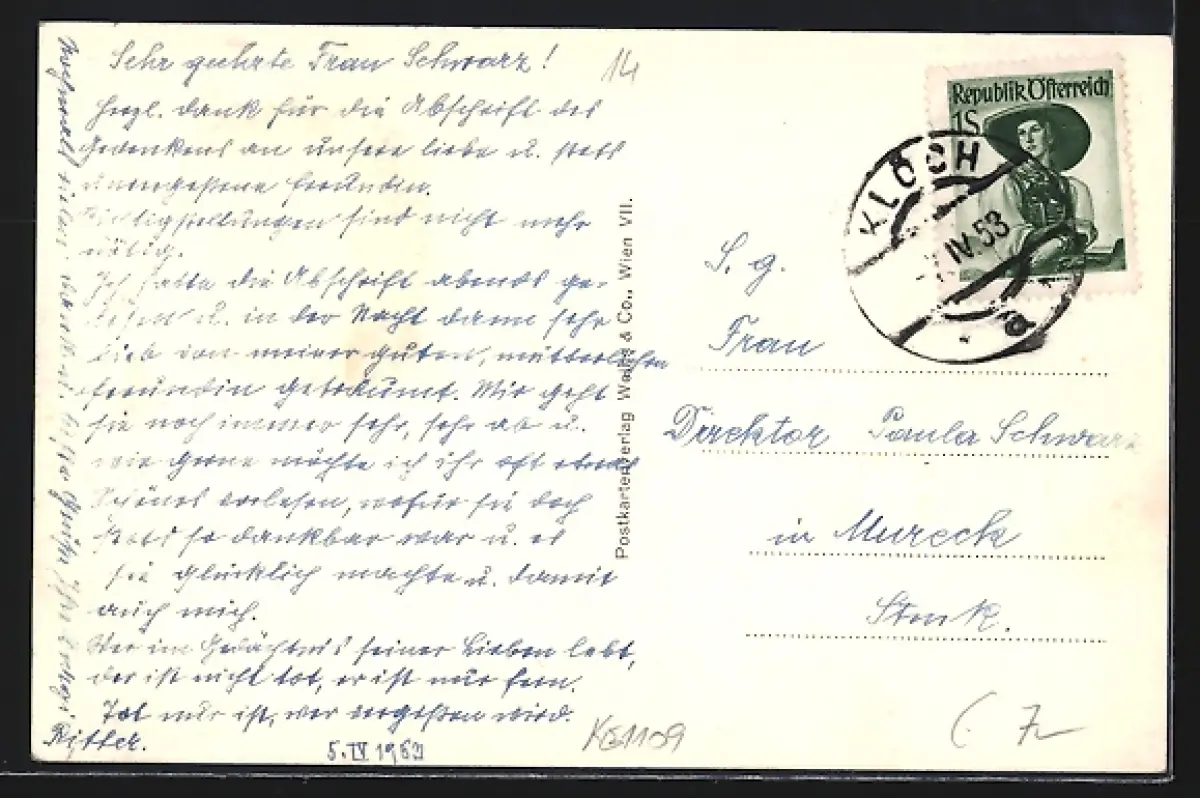 Sehr geehrte Frau Schwarz!
Herzl. Dank für die Abschrift des
Gedenkens an unsere liebe u. stets
unvergessene Freundin.
Richtigstellungen sind nicht mehr
nötig.
Ich hatte die Abschrift abends ge-
lesen u. in der Nacht dann sehr
lieb von meiner guten, mütterlichen
Freundin geträumt. Mir geht
sie noch immer sehr, sehr ab u.
wie gerne möchte ich ihr oft etwas
Schönes vorlesen, wofür sie doch
stets so dankbar war u. es
sie glücklich machte u. damit
auch mich.
Wer im Gedächtnis seiner Lieben lebt,
der ist nicht tot, er ist nur fern.
Tot nur ist, wer vergessen wird.
Nochmals vielen Dank u. Grüße Ihre
Ritter.
5.IV 1953
14
Postkartenverlag & Co., Wien VII.
Republik Österreich
1S
KLÖCH
IV.53
S. g.
Frau
Direktor Paula Schwarz
in Mureck
Stmk.
KE1109
7